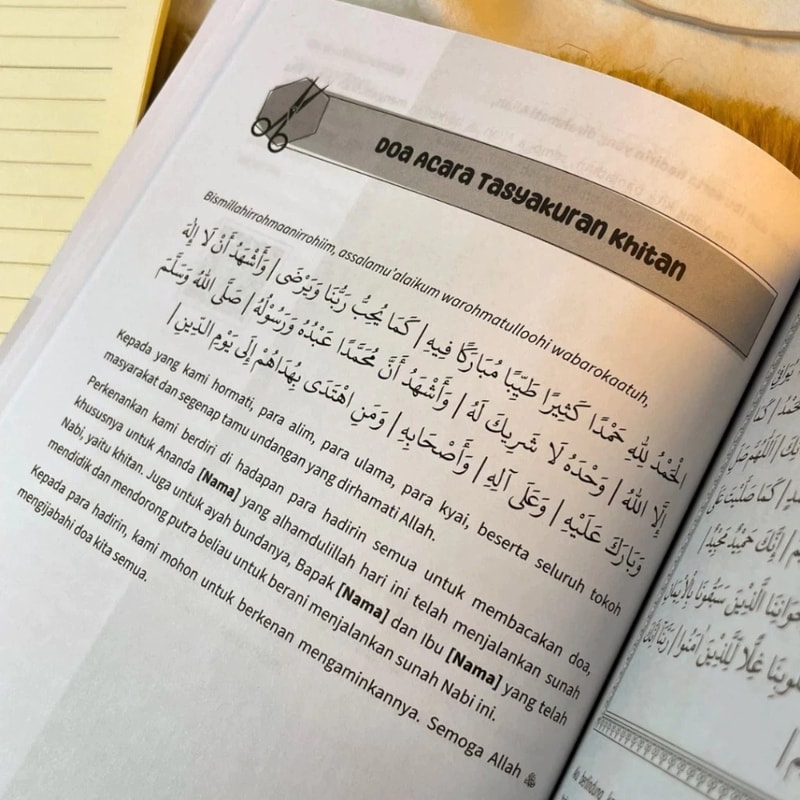 Doa Acara Tasyakuran Khitan
Bismillahirrohmaanirrohiim, assalamu'alaikum warohmatulloohi wabarokaatuh,
الْحَمْدُ لِلّٰهِ حَمْدًا كَثِيْرًا طَيِّبًا مُبَارَكًا فِيهِ | كَمَا يُحِبُّ رَبُّنَا وَيَرْضَى | وَأَشْهَدُ أَنْ لَا إِلٰهَ
إِلَّا اللّٰهُ | وَحْدَهُ لَا شَرِيكَ لَهُ | وَأَشْهَدُ أَنَّ مُحَمَّدًا عَبْدُهُ وَرَسُوْلُهُ | صَلَّى اللّٰهُ وَسَلَّمَ
وَبَارَكَ عَلَيْهِ | وَعَلَى آلِهِ | وَأَصْحَابِهِ | وَمَنِ اهْتَدَى بِهُدَاهُمْ إِلَى يَوْمِ الدِّينِ |
Kepada yang kami hormati, para alim, para ulama, para kyai, beserta seluruh tokoh
masyarakat dan segenap tamu undangan yang dirahmati Allah.
Perkenankan kami berdiri di hadapan para hadirin semua untuk membacakan doa,
khususnya untuk Ananda [Nama] yang alhamdulillah hari ini telah menjalankan sunah
Nabi, yaitu khitan. Juga untuk ayah bundanya, Bapak [Nama] dan Ibu [Nama] yang telah
mendidik dan mendorong putra beliau untuk berani menjalankan sunah Nabi ini.
Kepada para hadirin, kami mohon untuk berkenan mengaminkannya. Semoga Allah ﷻ
mengijabahi doa kita semua.
| كَمَا
اللّٰهُمَّ صَلِّ
| كَمَا صَلَّيْتَ عَلَى
| إِنَّكَ حَمِيْدٌ مَجِيْدٌ |
الَّذِيْنَ سَبَقُوْنَا بِالْإِيْمَانِ
غِلًّا لِّلَّذِيْنَ اٰمَنُوْا | رَبَّنَا